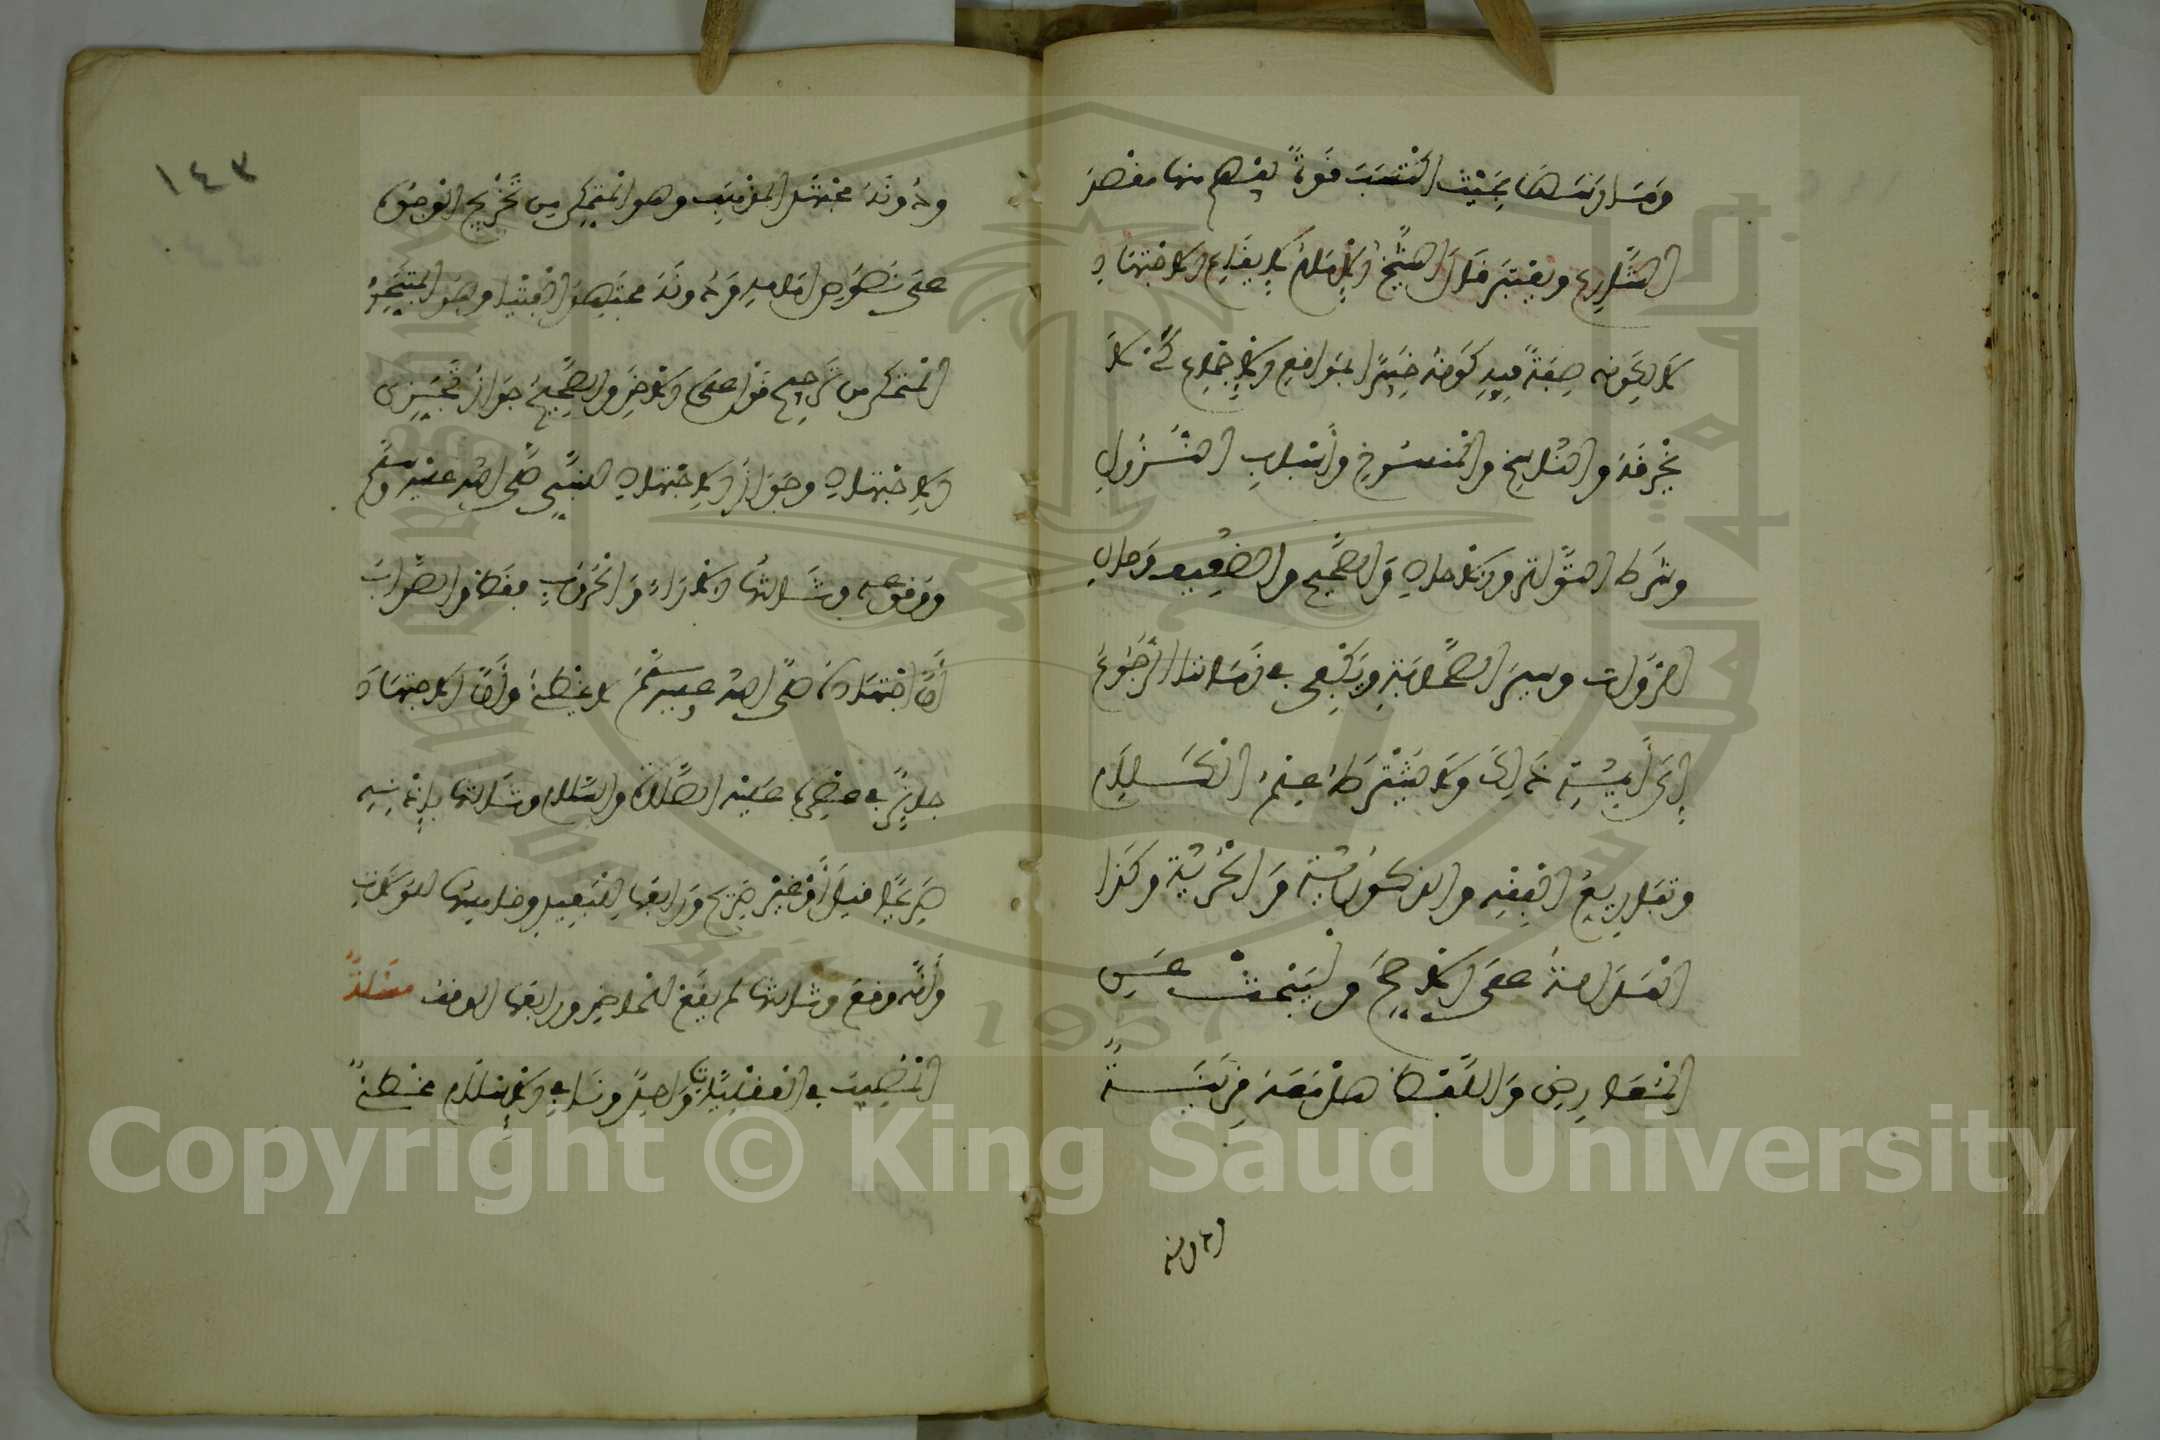 ومارسها بحيث اكتسب قوة يفهم بها مقصد
الشارع ويعتبر قال الشيخ الإمام لإيقاع الاجتهاد
لا لكونه صفة فيه كونه خبيرا بمواقع الإجماع كي لا
يخرقه والناسخ والمنسوخ وأسباب النزول
وشرط المتواتر والآحاد والصحيح والضعيف وحال
الرواة وسير الصحابة ويكفي في زماننا الرجوع
إلى أئمة ذلك ولا يشترط علم الكلام
وتفاريع الفقه والذكورة والحرية وكذا
العدالة على الأصح وليبحث عن
المعارض واللفظ هل معه قرينة
١٤٣
ودونه مجتهد المذهب وهو المتمكن من تخريج الوجوه
على نصوص إمامه ودونه مجتهد الفتيا وهو المتبحر
المتمكن من ترجيح قول على الآخر والصحيح جواز تجزي
الاجتهاد وجواز الاجتهاد للنبي صلى الله عليه وسلم
ووقوعه وثالثها الآراء والحروب فقط والصواب
أن اجتهاده صلى الله عليه وسلم لا يخطئ وأن الاجتهاد
جائز في عصره عليه الصلاة والسلام وثالثها بإذنه
صريحا قيل أو غير صريح ورابعها للبعيد وخامسها للولات
وأنه وقع وثالثها لم يقع للحاضر ورابعها الوقف مسألة
المصيب في العقليات واحد ونافي الإسلام مخطئ
Copyright © King Saud University
1957